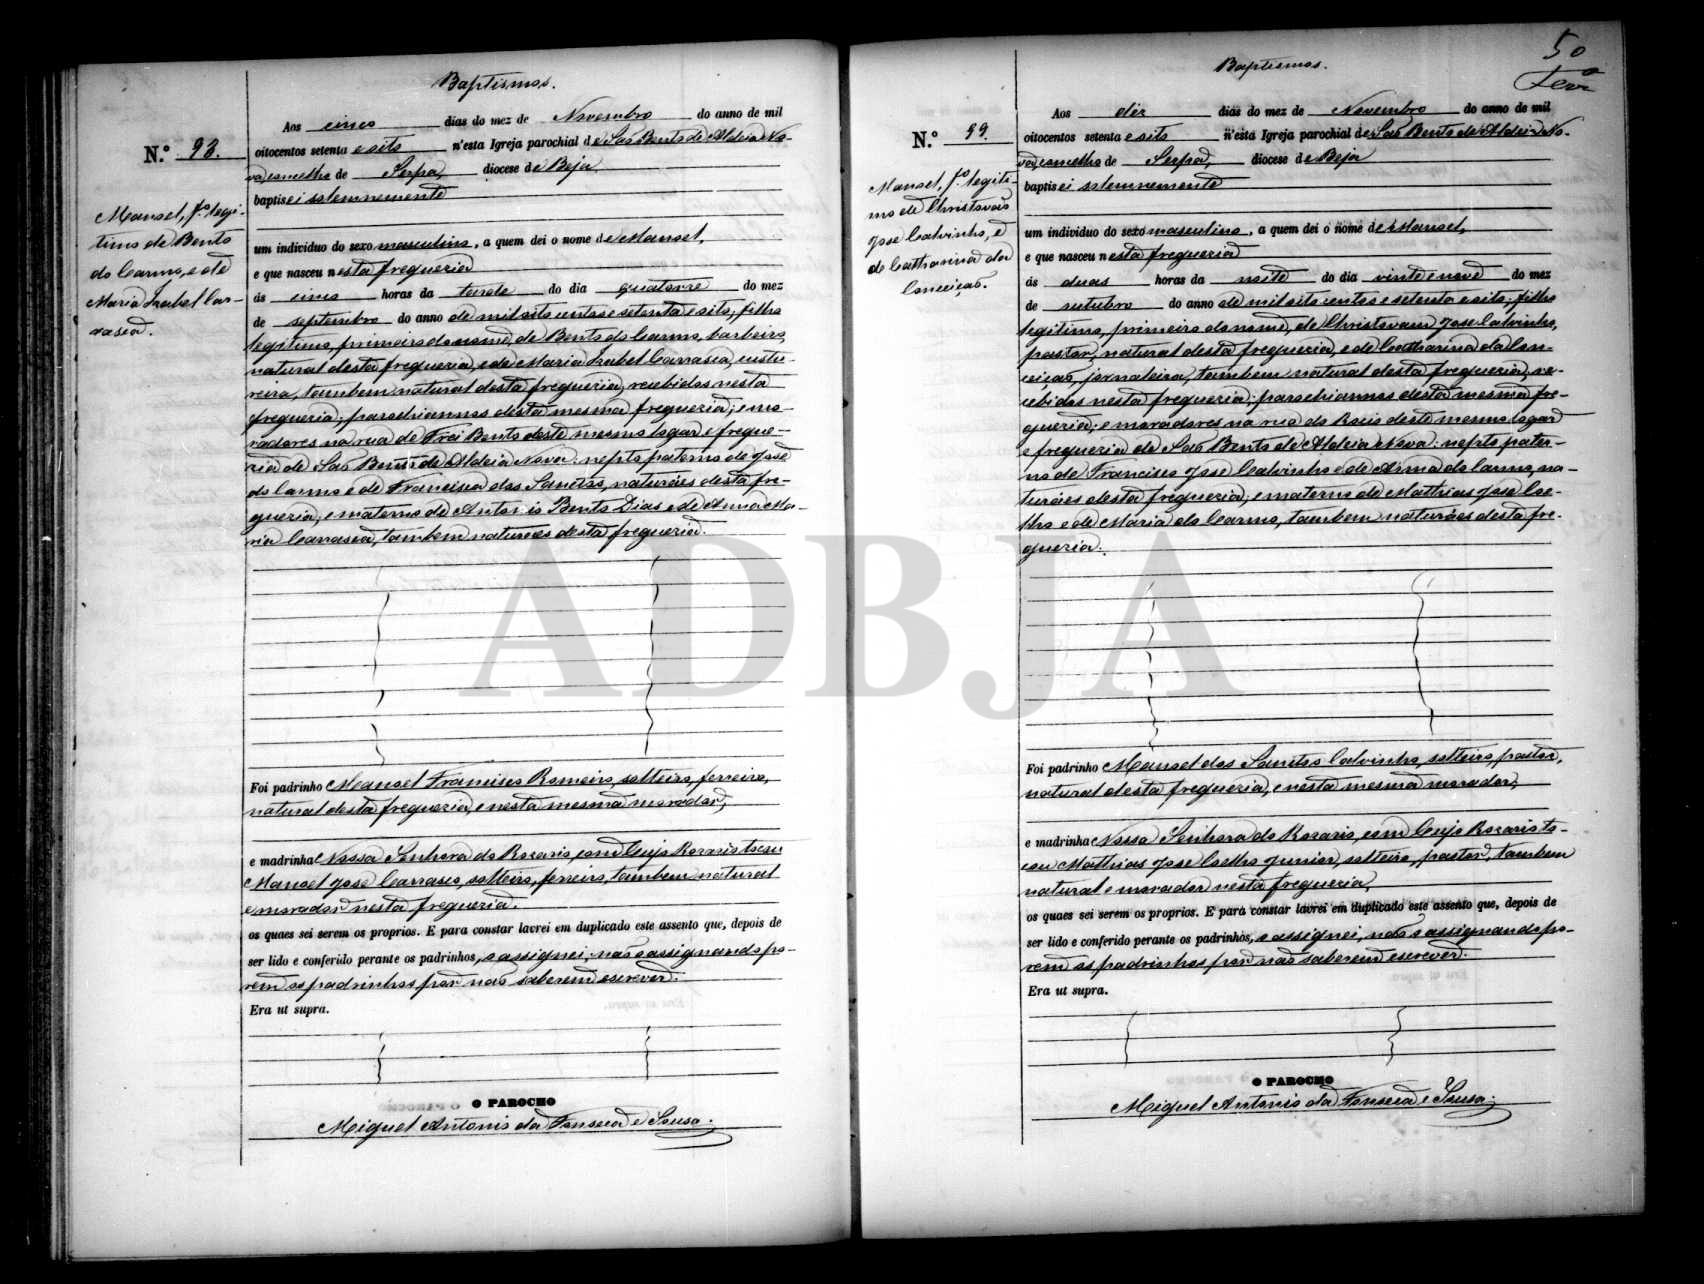 Baptismos.
N.º 98.
Manoel, f.º legi-
timo de Bento
do Carmo, e de
Maria Izabel Car-
rasca.
Aos cinco dias do mez de Novembro do anno de mil
oitocentos setenta e oito n'esta Igreja parochial de São Bento de Aldeia No-
va, concelho de Serpa, diocese de Beja
baptisei solemnemente
um individuo do sexo masculino, a quem dei o nome de Manoel,
e que nasceu nesta freguezia
ás cinco horas da tarde do dia quatorze do mez
de septembro do anno de mil oito centos e setenta e oito; filho
legitimo, primeiro do nome, de Bento do Carmo, barbeiro,
natural desta freguezia, e de Maria Izabel Carrasca, custu-
reira, tambem natural desta freguezia, recebidos nesta
freguezia; parochiannos desta mesma freguezia; e mo-
radores na rua de Frei Bento deste mesmo logar e fregue-
zia de São Bento de Aldeia Nova: nepto paterno de José
do Carmo e de Francisca dos Sanctos, naturáes desta fre-
guezia; e materno de Antonio Bento Dias e de Anna Ma-
ria Carrasca, tambem naturáes desta freguezia.
Foi padrinho Manoel Francisco Romeiro, solteiro, ferreiro,
natural desta freguezia, e nesta mesma morador;
e madrinha Nossa Senhora do Rozario, com Cujo Rozario tocou
Manoel José Carrasco, solteiro, ferreiro, tambem natural
e morador nesta freguezia.
os quaes sei serem os proprios. E para constar lavrei em duplicado este assento que, depois de
ser lido e conferido perante os padrinhos, o assignei, não o assignando po-
rem os padrinhos por não saberem escrever.
Era ut supra.
O PAROCHO
Miguel Antonio da Fonseca e Sousa.
50
Baptismos.
N.º 99.
Manoel, f.º legiti-
mo de Christovão
José Calvinho, e
de Catharina da
Conceição.
Aos dez dias do mez de Novembro do anno de mil
oitocentos setenta e oito n'esta Igreja parochial de São Bento de Aldeia No-
va, concelho de Serpa, diocese de Beja
baptisei solemnemente
um individuo do sexo masculino, a quem dei o nome de Manoel,
e que nasceu nesta freguezia
ás duas horas da noite do dia vinte e nove do mez
de outubro do anno de mil oito centos e setenta e oito; filho
legitimo, primeiro do nome, de Christovam José Calvinho,
pastor, natural desta freguezia, e de Catharina da Con-
ceição, jornaleira, tambem natural desta freguezia, re-
cebidos nesta freguezia; parochiannos desta mesma fre-
guezia; e moradores na rua do Rocio deste mesmo logar
e freguezia de São Bento de Aldeia Nova: nepto pater-
no de Francisco José Calvinho e de Anna do Carmo, na-
turáes desta freguezia; e materno de Matthias José Coe-
lho e de Maria do Carmo, tambem naturáes desta fre-
guezia.
Foi padrinho Manoel dos Sanctos Calvinho, solteiro, pastor,
natural desta freguezia, e nesta mesma morador;
e madrinha Nossa Senhora do Rozario, com Cujo Rozario to-
cou Matthias José Coelho Junior, solteiro, pastor, tambem
natural e morador nesta freguezia,
os quaes sei serem os proprios. E para constar lavrei em duplicado este assento que, depois de
ser lido e conferido perante os padrinhos, o assignei, não o assignando po-
rem os padrinhos por não saberem escrever.
Era ut supra.
O PAROCHO
Miguel Antonio da Fonseca e Sousa.
ADBJA